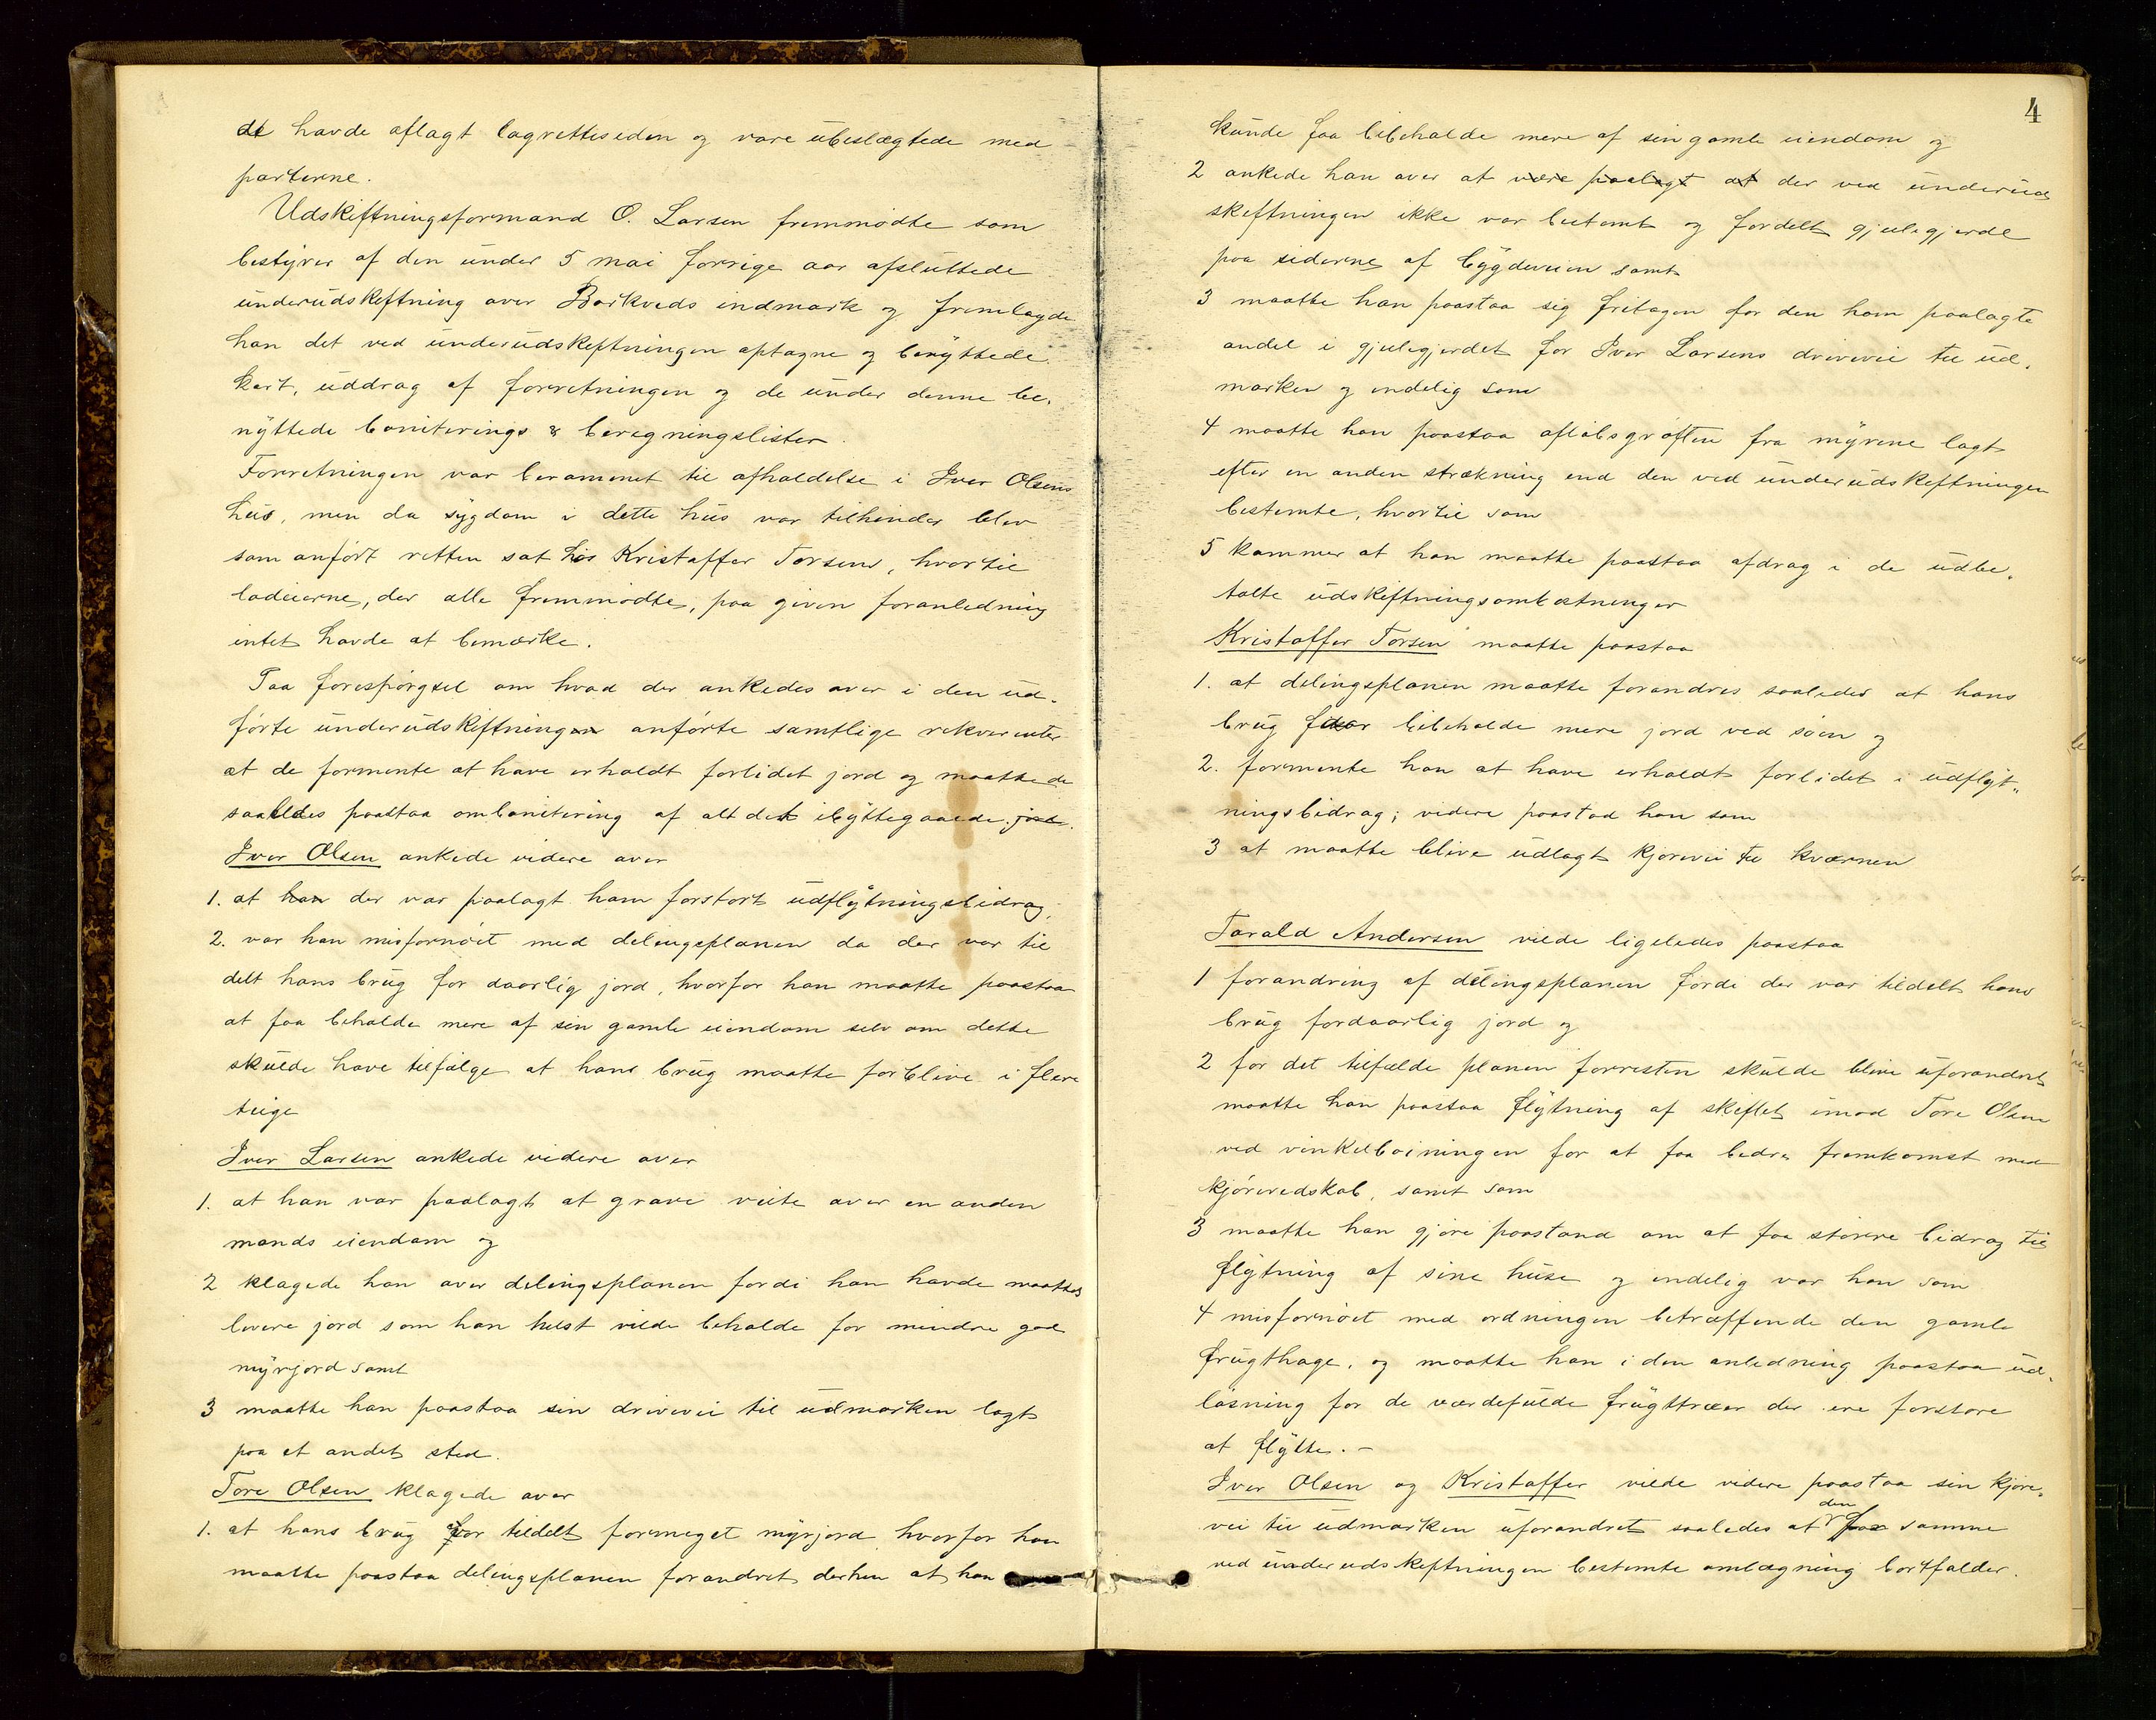 de havde aflagt lagretteseden og vare ubeslægtede med
parterne.
Udskiftningsformand O. Larsen fremmødte som
bestyrer af den under 5 mai forrige aar afsluttede
underudskiftning over Barkveds indmark og fremlagde
han det ved underudskiftningen optagne og benyttede
kart, uddrag af forretningen og de under denne be-
nyttede boniterings & beregningslister.
Forretningen var berammet til afholdelse i Iver Olsens
hus, men da sygdom i dette hus var tilhinder blev
som anført retten sat hos Kristoffer Torsen, hvortil
lodeierne, der alle fremmødte, paa given foranledning
intet havde at bemærke.
Paa forespørgsel om hvad der ankedes over i den ud-
førte underudskiftningen anførte samtlige rekvirenter
at de formente at have erholdt forlidet jord og maatte de
saaledes paastaa ombonitering af alt det ibyttegaaede jord.
Iver Olsen ankede videre over
1. at han der var paalagt ham forstort udflytningsbidrag,
2. var han misfornøiet med delingsplanen da der var til
delt hans brug for daarlig jord, hvorfor han maatte paastaa
at faa beholde mere af sin gamle eiendom selv om dette
skulde have tilfølge at hans brug maatte forblive i flere
teige
Iver Larsen ankede videre over
1. at han var paalagt at grave veite over en anden
mands eiendom og
2 klagede han over delingsplanen fordi han havde maattet
levere jord som han helst vilde beholde for mindre god
myrjord samt
3 maatte han paastaa sin drivevei til udmarken lagt
paa et andet sted.
Tore Olsen klagede over
1. at hans brug var tildelt formeget myrjord hvorfor han
maatte paastaa delingsplanen forandret derhen at han
4
kunde faa bibeholde mere af sin gamle eiendom og
2 ankede han over at være paalagt at der ved underud
skiftningen ikke var bestemt og fordelt gjulegjerde
paa siderne af bygdeveien samt
3 maatte han paastaa sig fritagen for den ham paalagte
andel i gjulegjerdet for Iver Larsens drivevei til ud-
marken og endelig som
4 maatte han paastaa afløbsgrøften fra myrene lagt
efter en anden strækning end den ved underudskiftningen
bestemte, hvortil som
5 kommer at han maatte paastaa afdrag i de udbe-
talte udskiftningsomkostninger
Kristoffer Torsen maatte paastaa
1. at delingsplanen maatte forandres saaledes at hans
brug faar bibeholde mere jord ved søen og
2. formente han at have erholdt forlidet i udflyt-
ningsbidrag; videre paastod han som
3 at maatte blive udlagt kjørevei til kværnen
Tarald Andersen vilde ligeledes paastaa
1 forandring af delingsplanen fordi der var tildelt hans
brug fordaarlig jord og
2 for det tilfælde planen forresten skulde blive uforandret
maatte han paastaa flytning af skiftet imod Tore Olsen
ved vinkelbøiningen for at faa bedre fremkomst med
kjøreredskab, samt som
3 maatte han gjøre paastand om at faa større bidrag til
flytning af sine huse og endelig var han som
4 misfornøiet med ordningen betræffende den gamle
frugthage, og maatte han i den anledning paastaa ud-
løsning for de værdefulde frugttræer der ere forstore
at flytte. –
Iver Olsen og Kristoffer vilde videre paastaa sin kjøre-
vei til udmarken uforandret saaledes at den for samme
ved underudskiftningen bestemte omlægning bortfalder.